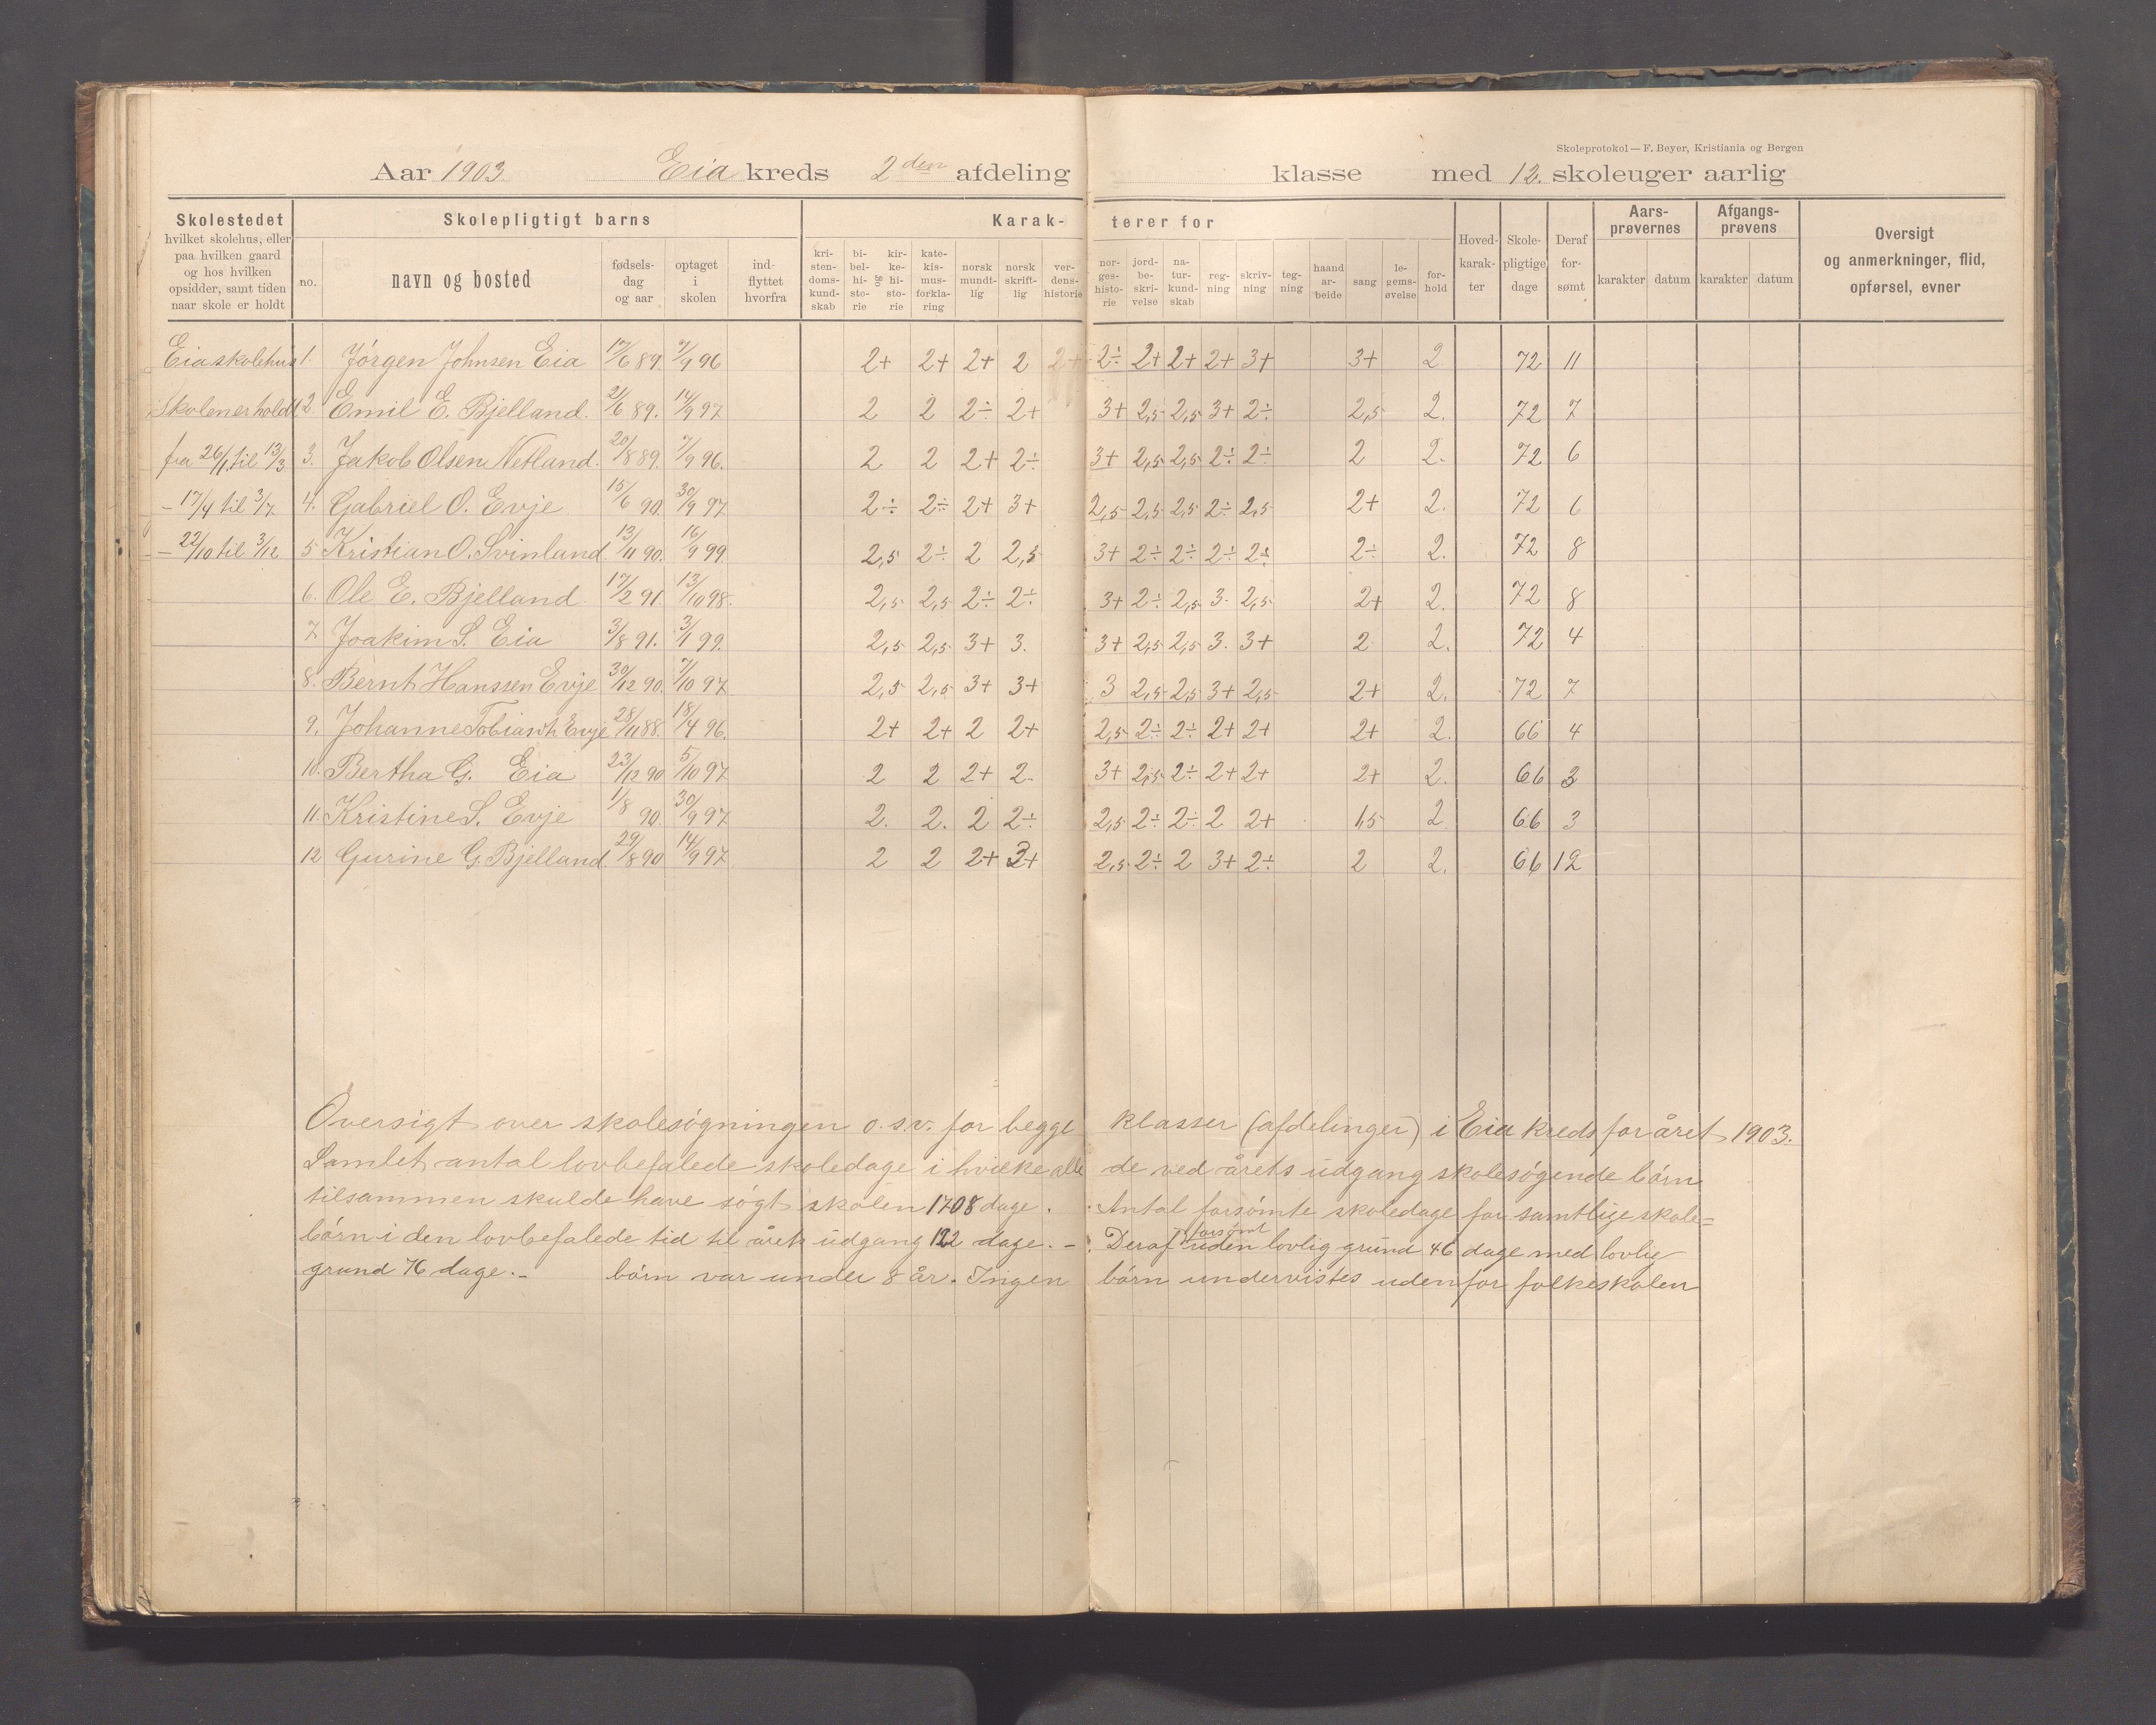 Skoleprotokol — F. Beyer, Kristiania og Bergen
Aar 1903 Eia kreds 2den afdeling klasse med 12. skoleuger aarlig
Skolestedet hvilket skolehus, eller paa hvilken gaard og hos hvilken opsidder, samt tiden naar skole er holdt
Skolepligtigt barns
no. navn og bosted fødselsdag og aar optaget i skolen indflyttet hvorfra
Karakterer for
kristendomskundskab bibelhistorie og kirkehistorie katekismusforklaring norsk mundtlig norsk skriftlig verdenshistorie norgeshistorie jordbeskrivelse naturkundskab regning skrivning tegning haandarbeide sang legemsøvelse forhold
Hovedkarakter Skolepligtige dage Deraf forsømt
Aarsprøvernes karakter datum
Afgangsprøvens karakter datum
Oversigt og anmerkninger, flid, opførsel, evner
Eia skolehus 1. Jörgen Johnsen Eia 17/6 89. 7/9 96 2+ 2+ 2+ 2 2+ 2÷ 2+ 2+ 2+ 3+ 3+ 2. 72 11
Skolen er holdt 2. Emil E. Bjelland. 21/6 89. 14/9 97 2 2 2÷ 2+ 3+ 2,5 2,5 3+ 2÷ 2,5 2. 72 7
fra 26/1 til 13/3 3. Jakob Olsen Netland. 20/8 89. 7/9 96. 2 2 2+ 2÷ 3+ 2,5 2,5 2÷ 2÷ 2 2. 72 6
– 17/4 til 3/7 4. Gabriel O. Evje 15/6 90. 30/9 97 2÷ 2÷ 2+ 3+ 2,5 2,5 2,5 2÷ 2,5 2+ 2. 72 6
– 22/10 til 3/12 5 Kristian O. Svinland 13/11 90. 16/9 99. 2,5 2÷ 2 2,5 3+ 2÷ 2÷ 2÷ 2÷ 2÷ 2. 72 8
6. Ole E. Bjelland 17/2 91. 13/10 98. 2,5 2,5 2÷ 2÷ 3+ 2÷ 2,5 3. 2,5 2+ 2. 72 8
7. Joakim S. Eia 3/8 91. 3/1 99. 2,5 2,5 3+ 3. 3+ 2,5 2,5 3. 3+ 2 2. 72 4
8. Bernt Hanssen Evje 30/12 90. 7/10 97 2,5 2,5 3+ 3+ 3 2,5 2,5 3+ 2,5 2+ 2. 72 7
9. Johanne Tobias Evje 28/11 88. 18/4 96. 2+ 2+ 2 2+ 2,5 2÷ 2÷ 2+ 2+ 2+ 2. 66 4
10. Bertha G. Eia 23/12 90 5/10 97 2 2 2+ 2. 3+ 2,5 2÷ 2+ 2+ 2+ 2. 66 3
11. Kristine S. Evje 1/8 90. 30/9 97 2. 2. 2 2÷ 2,5 2÷ 2÷ 2 2+ 1,5 2 66 3
12 Gurine G. Bjelland. 29/8 90 14/9 97 2 2 2+ 3+ 2,5 2÷ 2 3+ 2÷ 2 2. 66 12
Oversigt over skolesögningen o.s.v. for begge klasser (afdelinger) i Eia kreds for året 1903.
Samlet antal lovbefalede skoledage i hvilke alle de ved årets udgang skolesögende börn
tilsammen skulde have sögt skolen 1708 dage. Antal forsömte skoledage for samtlige skole=
börn i den lovbefalede tid til årets udgang 122 dage. – Deraf forsömt uden lovlig grund 46 dage med lovlig
grund 76 dage. – börn var under 8 år. Ingen börn undervistes udenfor folkeskolen